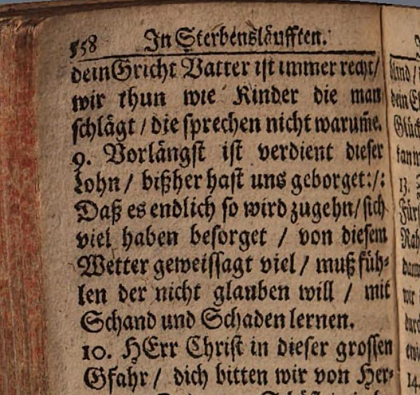 358 In Sterbensläufften.
dein Gricht Vatter ist immer recht/
wir thun wie Kinder die man
schlägt / die sprechen nicht warum̃e.
9. Vorlängst ist verdient dieser
Lohn / bißher hast uns geborget:/:
Daß es endlich so wird zugehn/sich
viel haben besorget / von diesem
Wetter geweissagt viel / muß füh-
len der nicht glauben will / mit
Schand und Schaden lernen.
10. HErr Christ in dieser grossen
Gfahr / dich bitten wir von Her-